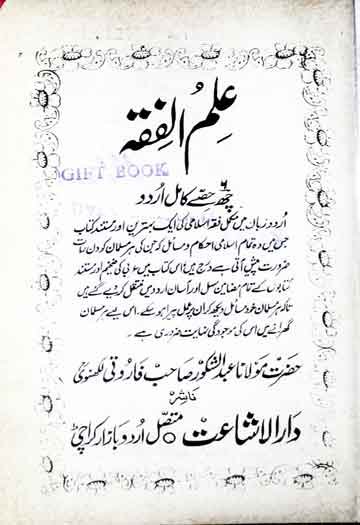 علم الفقہ
GIFT BOOK
۶ چھ حصے کامل اُردو
اُردو زبان میں مکمل فقہ اسلامی کی ایک بہترین اور مستند کتاب
جس میں وہ تمام اسلامی احکام و مسائل کو جن کی ہر مسلمان کو دن رات
ضرورت پیش آتی ہے درج ہیں اس کتاب میں عربی کی ضخیم اور مستند
کتابوں کے تمام مضامین سہل اور آسان اردو میں منتقل کر دیے گئے ہیں
تاکہ ہر مسلمان خود مسائل دیکھ کر ان پر عمل پیرا ہو سکے۔ اس لیے ہر مسلمان
گھرانے میں اس کی موجودگی نہایت ضروری ہے۔
حضرت مولانا عبدالشکور صاحب فاروقی لکھنوی
ناشر
دار الاشاعت متصل اردو بازار کراچی